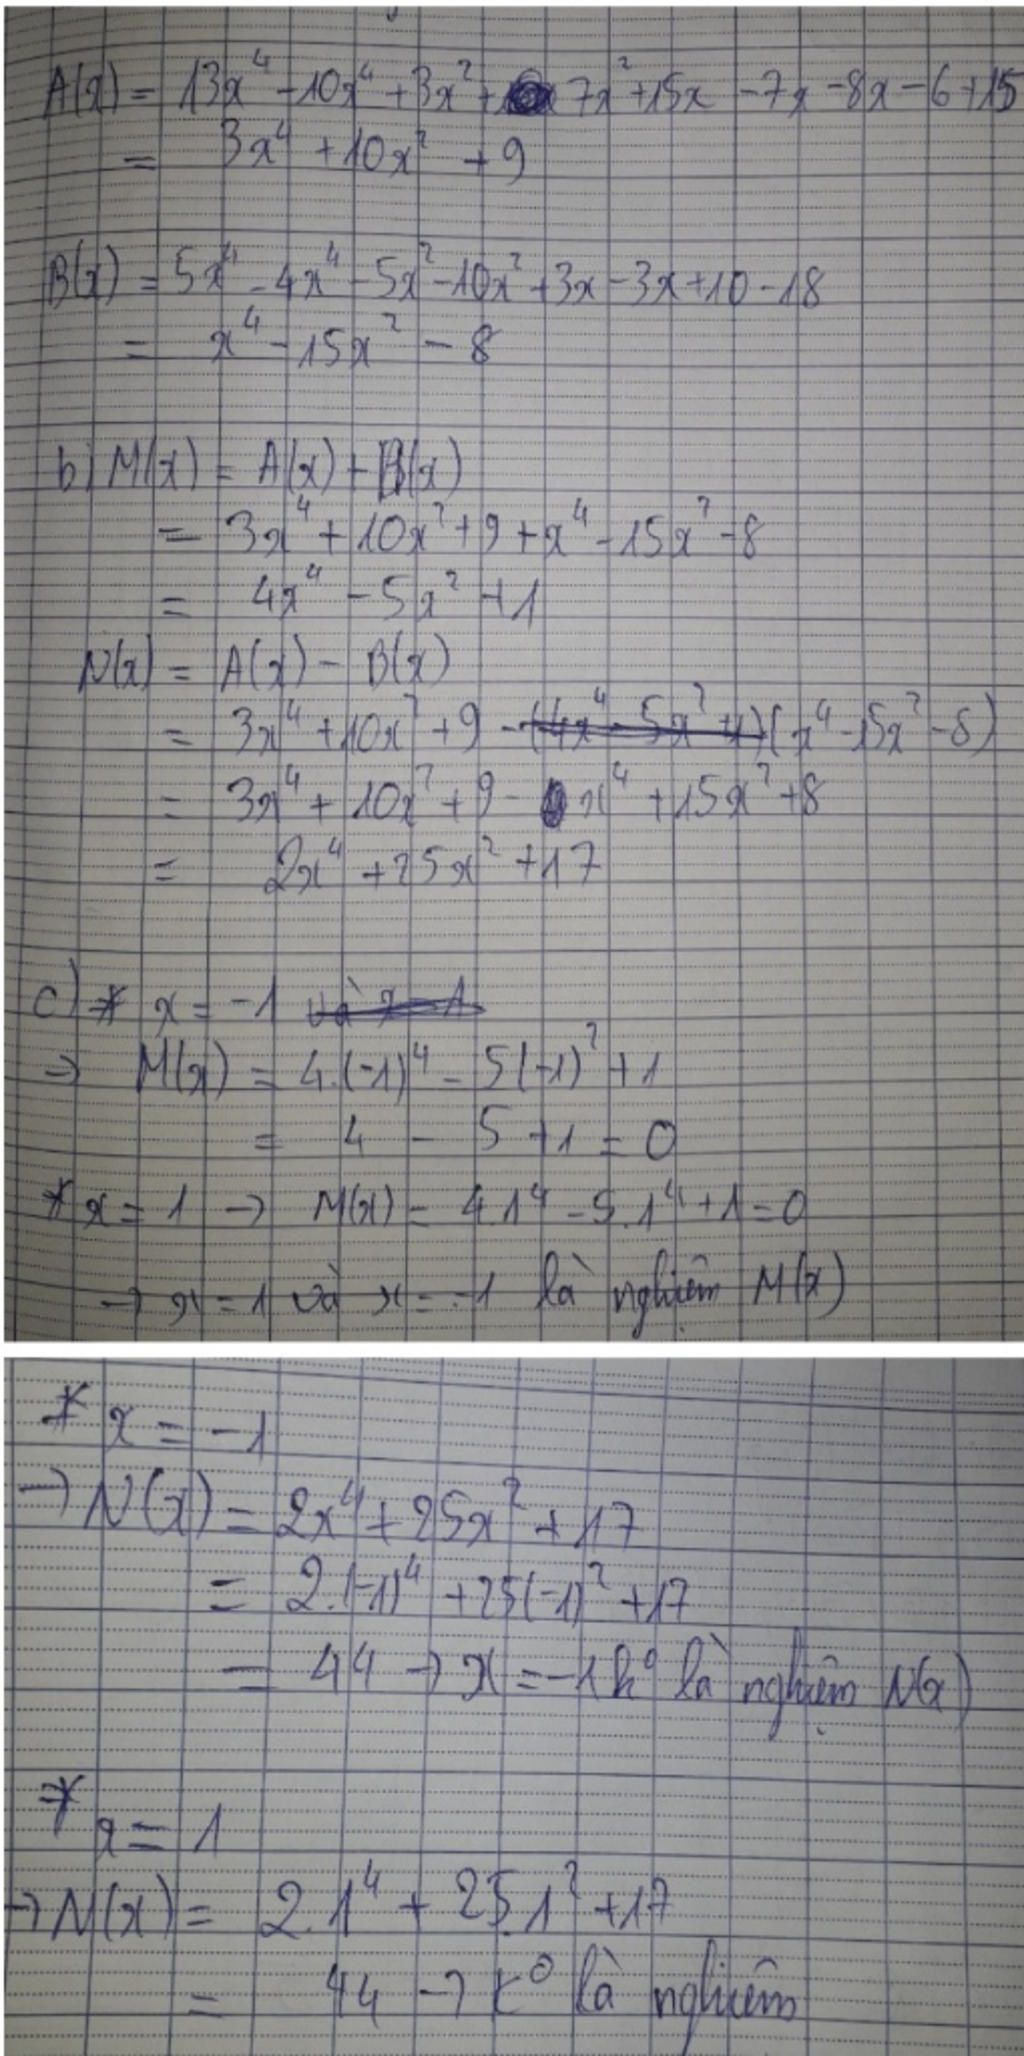 A(x) = 13x⁴ - 10x⁴ + 3x² + 7x² + 15x - 7x - 8x - 6 + 15
= 3x⁴ + 10x² + 9
B(x) = 5x⁴ - 4x⁴ - 5x² - 10x² + 3x - 3x + 10 - 18
= x⁴ - 15x² - 8
b) M(x) = A(x) + B(x)
= 3x⁴ + 10x² + 9 + x⁴ - 15x² - 8
= 4x⁴ - 5x² + 1
N(x) = A(x) - B(x)
= 3x⁴ + 10x² + 9 - (4x⁴ - 5x² + 1) (x⁴ - 15x² - 8)
= 3x⁴ + 10x² + 9 - x⁴ + 15x² + 8
= 2x⁴ + 25x² + 17
c) * x = -1 và x = 1
=> M(x) = 4.(-1)⁴ - 5(-1)² + 1
= 4 - 5 + 1 = 0
* x = 1 → M(x) = 4.1⁴ - 5.1⁴ + 1 = 0
→ x = 1 và x = -1 là nghiệm M(x)
* x = -1
→ N(x) = 2x⁴ + 25x² + 17
= 2.(-1)⁴ + 25(-1)² + 17
= 44 → x = -1 k° là nghiệm N(x)
* x = 1
→ N(x) = 2.1⁴ + 25.1² + 17
= 44 → k° là nghiệm